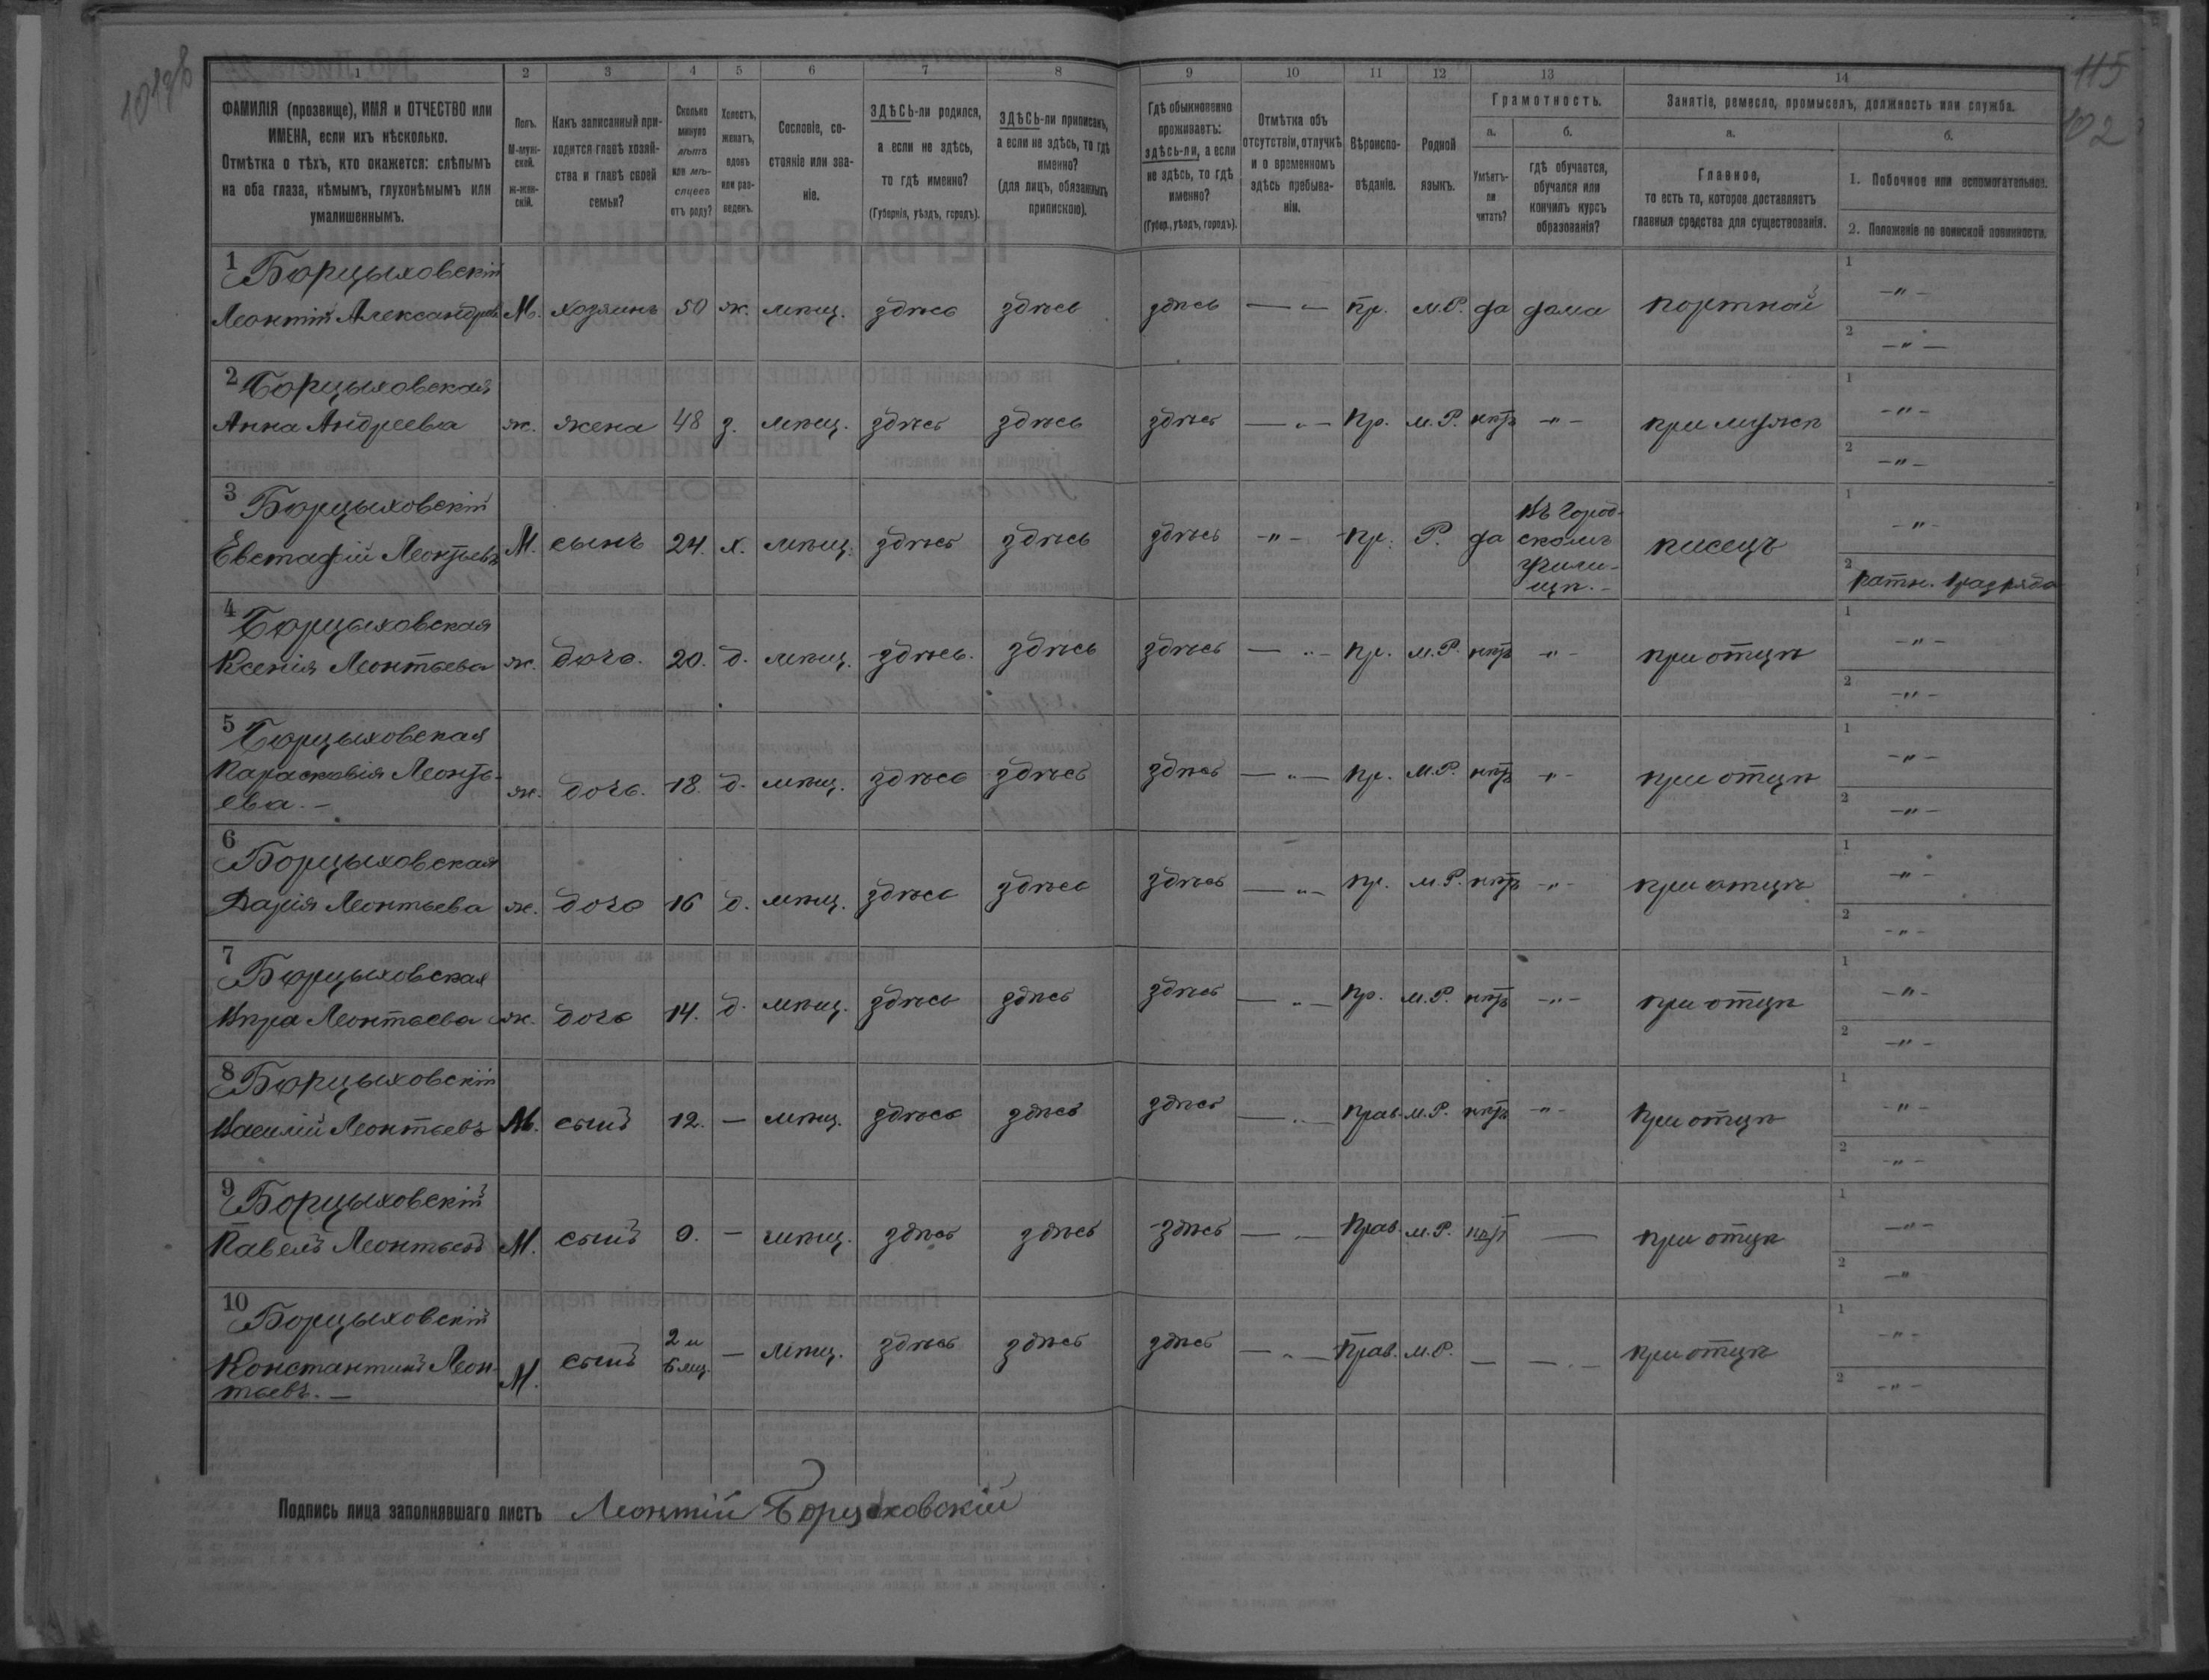 115
102
1 2 3 4 5 6 7 8 9 10 11 12 13 14
ФАМИЛІЯ (прозвище), ИМЯ и ОТЧЕСТВО или
ИМЕНА, если ихъ нѣсколько.
Отмѣтка о тѣхъ, кто окажется: слѣпымъ
на оба глаза, нѣмымъ, глухонѣмымъ или
умалишеннымъ.
Полъ.
М-муж-
ской.
ж-жен-
скій.
Какъ записанный при-
ходится главѣ хозяй-
ства и главѣ своей
семьи?
Сколько
минуло
лѣтъ
или мѣ-
сяцевъ
отъ роду?
Холостъ,
женатъ,
вдовъ
или раз-
веденъ.
Сословіе, со-
стояніе или зва-
ніе.
ЗДѢСЬ-ли родился,
а если не здѣсь,
то гдѣ именно?
(Губернія, уѣздъ, городъ).
ЗДѢСЬ-ли приписанъ,
а если не здѣсь, то гдѣ
именно?
(для лицъ, обязанныхъ
припискою).
Гдѣ обыкновенно
проживаетъ:
здѣсь-ли, а если
не здѣсь, то гдѣ
именно?
(Губер., уѣздъ, городъ).
Отмѣтка объ
отсутствіи, отлучкѣ
и о временномъ
здѣсь пребыва-
ніи.
Вѣроиспо-
вѣданіе.
Родной
языкъ.
Грамотность.
а.
Умѣетъ-
ли
читать?
б.
гдѣ обучается,
обучался или
кончилъ курсъ
образованія?
Занятіе, ремесло, промыселъ, должность или служба.
а.
Главное,
то есть то, которое доставляетъ
главныя средства для существованія.
б.
1. Побочное или вспомогательное.
2. Положеніе по воинской повинности.
1 Борцыховскій
Леонтій Александровъ М. хозяинъ 50 ж. мѣщ. здѣсь здѣсь здѣсь — — Пр. М.Р. да дома портной
1 —"—
2 —"—
2 Борцыховская
Анна Андреевна ж. жена 48 з. мѣщ. здѣсь здѣсь здѣсь —"— Пр. М.Р. нѣтъ —"— при мужѣ
1 —"—
2 —"—
3 Борцыховскій
Евстафій Леонтьевъ М. сынъ 24. х. мѣщ. здѣсь здѣсь здѣсь —"— Пр. Р. да Въ город-
скомъ
учили-
щѣ. — писецъ
1 —"—
2 ратн. 1 разряда
4 Борцыховская
Ксенія Леонтьева ж. дочь. 20. д. мѣщ. здѣсь. здѣсь здѣсь —"— Пр. М.Р. нѣтъ —"— при отцѣ
1 —"—
2 —"—
5 Борцыховская
Парасковія Леонть-
ева. — ж. дочь. 18. д. мѣщ. здѣсь здѣсь здѣсь —"— Пр. М.Р. нѣтъ —"— при отцѣ
1 —"—
2 —"—
6 Борцыховская
Дарія Леонтьева ж. дочь 16 д. мѣщ. здѣсь здѣсь здѣсь —"— Пр. М.Р. нѣтъ —"— при отцѣ
1 —"—
2 —"—
7 Борцыховская
Вѣра Леонтьева ж. дочь 14. д. мѣщ. здѣсь здѣсь здѣсь —"— Пр. М.Р. нѣтъ —"— при отцѣ
1 —"—
2 —"—
8 Борцыховскій
Василій Леонтьевъ М. сынъ 12. — мѣщ. здѣсь здѣсь здѣсь —"— Прав. М.Р. нѣтъ —"— при отцѣ
1 —"—
2 —"—
9 Борцыховскій
Павелъ Леонтьевъ М. сынъ 9. — мѣщ. здѣсь здѣсь здѣсь —"— Прав. М.Р. нѣтъ — при отцѣ
1 —"—
2 —"
10 Борцыховскій
Константинъ Леон-
тьевъ. — М. сынъ 2 и
6 мѣц. — мѣщ. здѣсь здѣсь здѣсь —"— Прав. М.Р. — —"— при отцѣ
1 —"—
2 —"—
Подпись лица заполнявшаго листъ Леонтій Борцыховскій